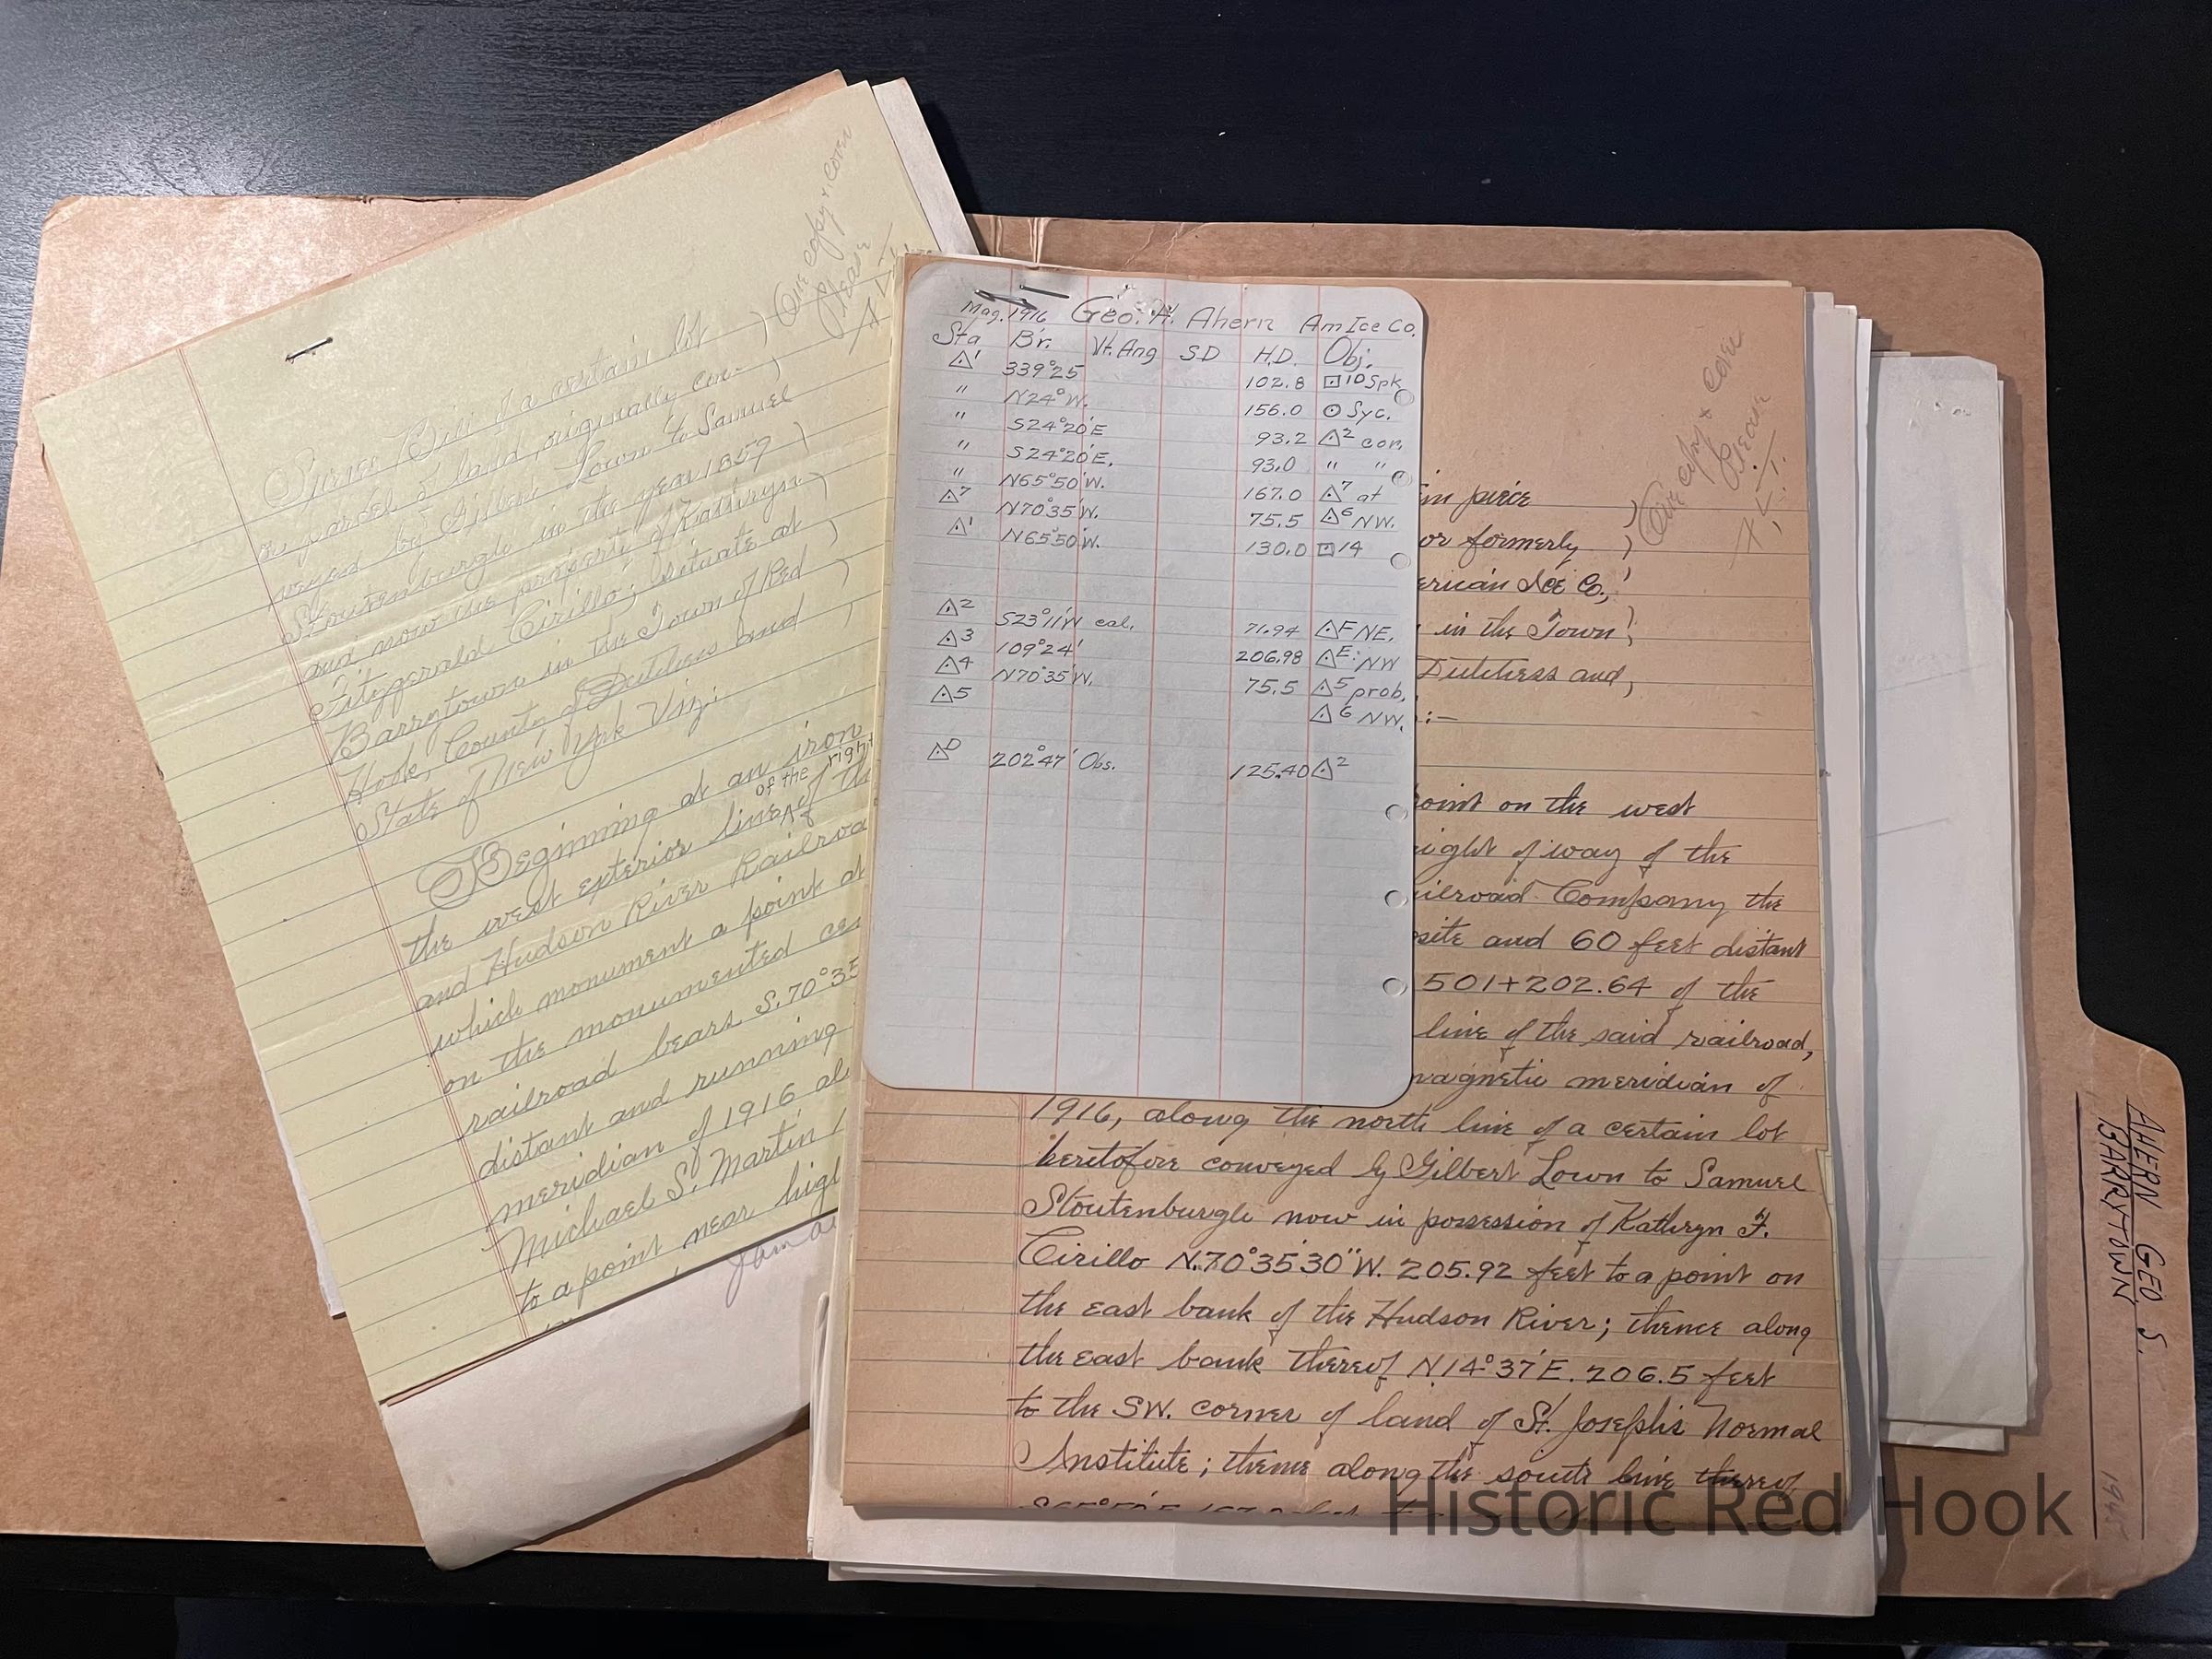 One copy + cover
Please
Survey Bill of a certain lot )
or parcel of land, originally con- )
veyed by Gilbert Lown to Samuel
Stoutenburgh in the year 1859 )
and now the property of Kathryn )
Fitzgerald Cirillo; situate at )
Barrytown in the Town of Red )
Hook, County of Dutchess and )
State of New York Viz:
Beginning at an iron
of the right
the west exterior line of
and Hudson River Railroa
which monument a point at
on the monumented ce
railroad bears S.70°35
distant and running
meridian of 1916 al
Michael S. Martin
to a point near high
Mag. 1916 Geo. H. Ahern Am Ice Co.
Sta Br. Vt. Ang S.D H.D. Obj.
△1 339°25 102.8 ⊡ 10 Spk
" N24°W. 156.0 ⊙ Syc.
" S24°20'E 93.2 △2 con.
" S24°20'E. 93.0 " "
" N65°50'W. 167.0 △7 at
△7 N70°35'W. 75.5 △6 NW.
△1 N65°50'W. 130.0 ⊡ 14
△2 S23°11'W cal. 71.94 △F NE.
△3 109°24' 206.98 △E: NW
△4 N70°35'W. 75.5 △5 prob.
△5 △6 NW.
△D 202°47' Obs. 125.40 △2
One copy + cover
Please
in piece )
or formerly )
erican Ice Co., )
in the Town )
Dutchess and,
:—
oint on the west
ight of way of the
ilroad Company the
site and 60 feet distant
501+202.64 of the
line of the said railroad,
magnetic meridian of
1916, along the north line of a certain lot
heretofore conveyed by Gilbert Lown to Samuel
Stoutenburgh now in possession of Kathryn F.
Cirillo N.70°35'30"W. 205.92 feet to a point on
the east bank of the Hudson River; thence along
the east bank thereof N.14°37'E. 206.5 feet
to the SW. corner of land of St. Joseph's Normal
Institute; thence along the south line thereof
AHERN GEO S.
BARRYTOWN
Historic Red Hook